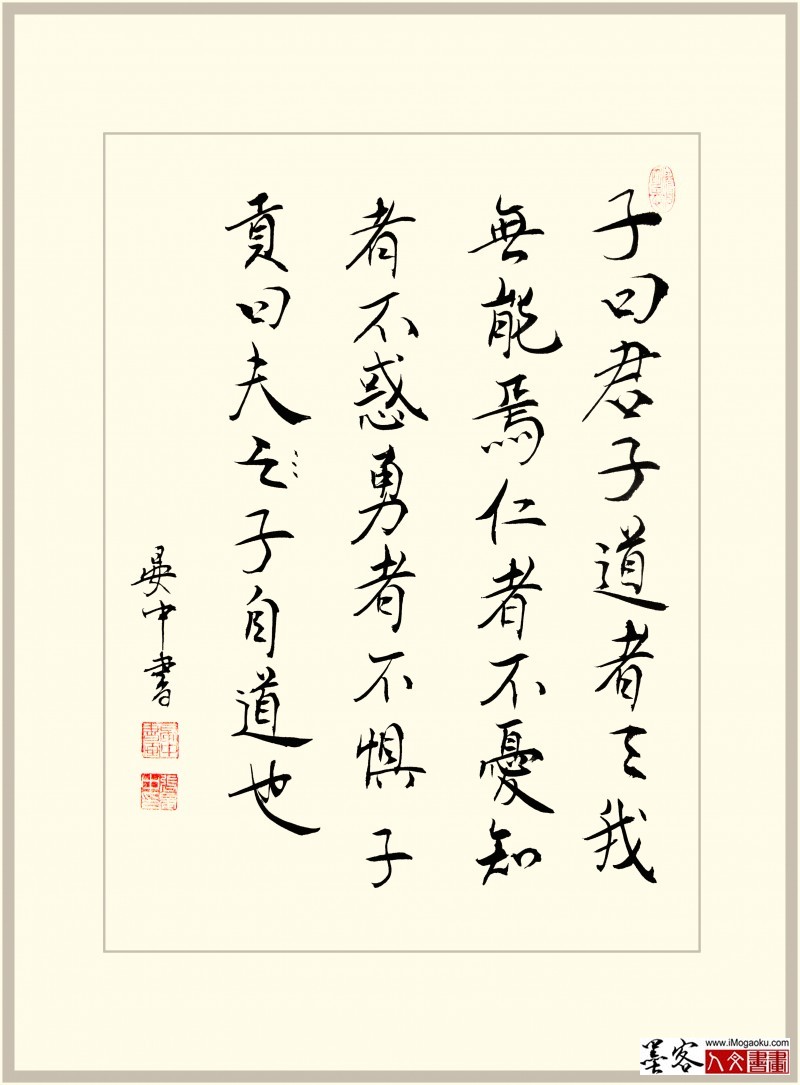 子曰君子道者三我
無能焉仁者不憂知
者不惑勇者不惧子
貢曰夫之子自道也
晏中書
墨客
www.iMogaoku.com
人文書畫